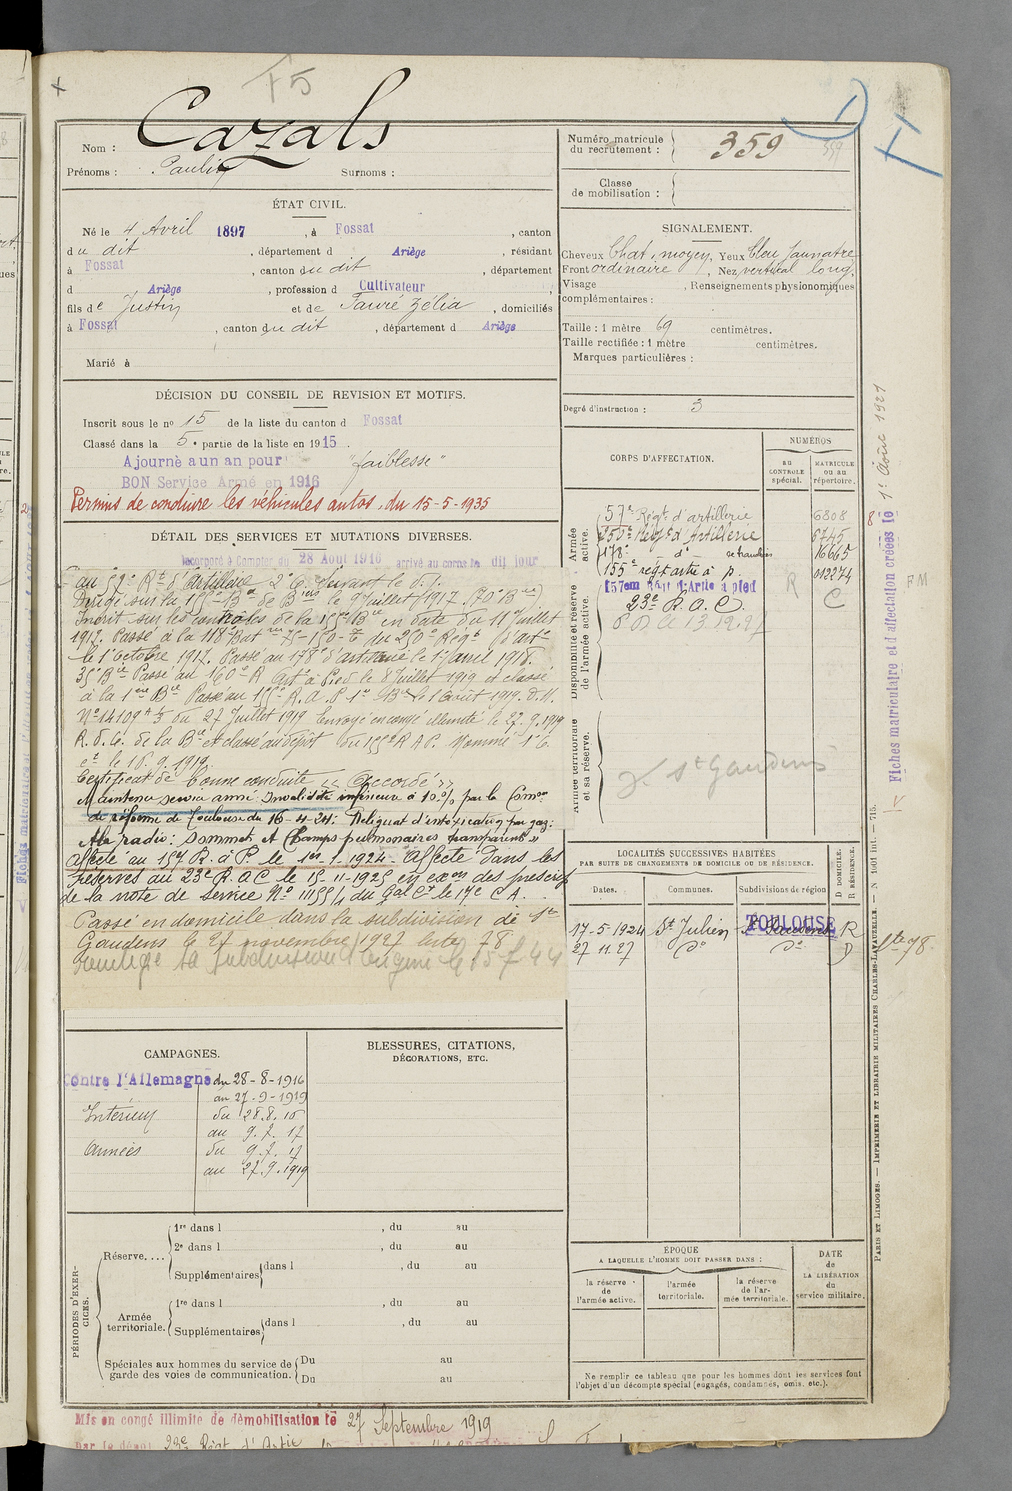 F5
Cazals
Nom :
Prénoms : Paulin Surnoms :
ÉTAT CIVIL.
Né le 4 Avril 1897, à Fossat, canton
du dit, département d Ariège, résidant
à Fossat, canton du dit, département
d Ariège, profession d Cultivateur,
fils de Justin et de Fauré Zélia, domiciliés
à Fossat, canton du dit, département d Ariège
Marié à
DÉCISION DU CONSEIL DE REVISION ET MOTIFS.
Inscrit sous le no 15 de la liste du canton d Fossat
Classé dans la 5e partie de la liste en 1915.
Ajourné a un an pour "faiblesse"
BON Service Armé en 1916
Permis de conduire les véhicules autos, du 15-5-1935
DÉTAIL DES SERVICES ET MUTATIONS DIVERSES.
Incorporé à Compter du 28 Aout 1916 arrivé au corps le dit jour
au 57e Rt d'artillerie 2e C. Suivant le d. j.
Dirigé sur la 155e Bie de le 9 Juillet 1917 (70e Bie)
Inscrit sur les contrôles de la Bie en date du 11 Juillet
1917. Passé à la 118e Bat du 250e Régt d'arte
le 1er octobre 1917. Passé au 178e d'artillerie le 1er avril 1918.
35e Bie Passé au 160e R Art à Pied le 8 Juillet 1919 et classé
à la 1ere Bie Passé au 155e R.A.P. 1e Bie le 1 Août 1919. D.M.
No 14109 du 27 Juillet 1919 Envoyé en congé illimité le 27.9.1919
R.d.C. de la Bie et classé au dépôt du 155e R A P. Nommé 1e C.
ct le 16.9.1919.
Certificat de bonne conduite "Accordé"
Maintenu service armé. Invalidité inférieure à 10% par la Comon
de réforme de Toulouse du 16-4-24: Reliquat d'intoxication par gaz:
A la radio: sommets et champs pulmonaires transparents
Affecté au 157 R. à P. le 1er 1.1924. Affecté dans les
réserves au 23e R.A.C le 15.11.1925 en exon des prescrip
de la note de service No 11155/1 du Gal Ct le 17e C A.
Passé en domicile dans la subdivision de St
Gaudens le 27 novembre 1927 liste 78
la subdivision d'origine le 15 7 44
CAMPAGNES.
Contre l'Allemagne du 28-8-1916
au 27-9-1919
Intérieur du 28.8.16
au 9.7.17
Armées du 9.7.17
au 27.9.1919
BLESSURES, CITATIONS,
DÉCORATIONS, ETC.
PÉRIODES D'EXERCICES.
Réserve....
1re dans l , du au
2e dans l , du au
Supplémentaires dans l , du au
Armée territoriale.
1re dans l , du au
Supplémentaires dans l , du au
Spéciales aux hommes du service de
garde des voies de communication.
Du au
Du au
Mis en congé illimité de démobilisation le 27 Septembre 1919
Numéro matricule
du recrutement : 359
359
Classe
de mobilisation :
SIGNALEMENT.
Cheveux Chat. moyen, Yeux bleu jaunatre
Front ordinaire, Nez vertical long.
Visage , Renseignements physionomiques
complémentaires :
Taille : 1 mètre 69 centimètres.
Taille rectifiée : 1 mètre centimètres.
Marques particulières :
Degré d'instruction : 3
CORPS D'AFFECTATION.
NUMÉROS
AU CONTROLE spécial.
MATRICULE OU AU répertoire.
Armée active.
57e Régt d'artillerie 6808
250e Régt d'Artillerie 6745
178e - d° - 16645
155e régt artie à P. 012274
Disponibilité et réserve de l'armée active.
157em Régt d'Artie à pied R
23e R.A.C. C
P D le 13.12.27
Armée territoriale et sa réserve.
St Gaudens
LOCALITÉS SUCCESSIVES HABITÉES
PAR SUITE DE CHANGEMENTS DE DOMICILE OU DE RÉSIDENCE.
Dates. Communes. Subdivisions de région
D DOMICILE. R RÉSIDENCE.
17-5-1924 St Julien St Gaudens TOULOUSE R
27 11.27 d° d° D liste 78.
ÉPOQUE
A LAQUELLE L'HOMME DOIT PASSER DANS :
la réserve de l'armée active.
l'armée territoriale.
la réserve de l'armée territoriale.
DATE de LA LIBÉRATION du service militaire.
Ne remplir ce tableau que pour les hommes dont les services font
l'objet d'un décompte spécial (engagés, condamnés, omis, etc.).
Fiches matriculaire et d'affectation créées le 1er Août 1921
FM
PARIS ET LIMOGES. — IMPRIMERIE ET LIBRAIRIE MILITAIRES CHARLES-LAVAUZELLE. — N 1001 int. — 715.